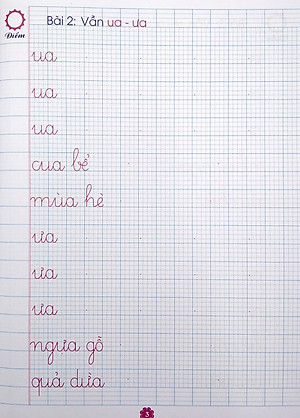 Điểm
Bài 2: Vần ua - ưa
ua
ua
ua
cua bể
mùa hè
ưa
ưa
ưa
ngựa gỗ
quả dừa
3